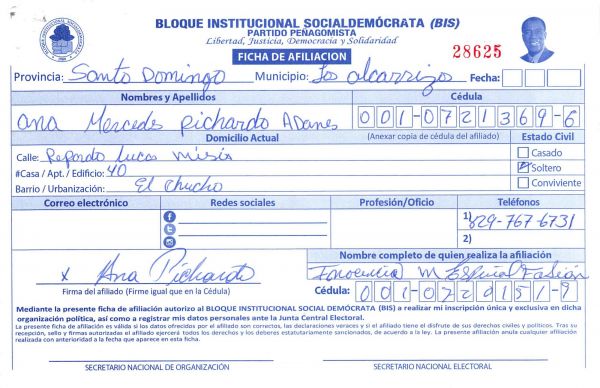 BLOQUE INSTITUCIONAL SOCIALDEMÓCRATA (BIS)
PARTIDO PEÑAGOMISTA
Libertad, Justicia, Democracia y Solidaridad
FICHA DE AFILIACION
28625
Provincia: Santo Domingo Municipio: Los alcarrizos Fecha:
Nombres y Apellidos Cédula
ana Mercedes pichardo 001-0721369-6
Domicilio Actual (Anexar copia de cédula del afiliado) Estado Civil
Calle: Reparto Lucas Casado
#Casa / Apt. / Edificio: 40 Soltero
Barrio / Urbanización: El Chucho Conviviente
Correo electrónico Redes sociales Profesión/Oficio Teléfonos
1) 829-767-6731
2)
Nombre completo de quien realiza la afiliación
x Ana Pichardo
M Espinal Fabián
Firma del afiliado (Firme igual que en la Cédula)
Cédula: 001-0720151-9
Mediante la presente ficha de afiliación autorizo al BLOQUE INSTITUCIONAL SOCIAL DEMÓCRATA (BIS) a realizar mi inscripción única y exclusiva en dicha
organización política, así como a registrar mis datos personales ante la Junta Central Electoral.
La presente ficha de afiliación es válida si los datos ofrecidos por el afiliado son correctos, las declaraciones veraces y si el afiliado tiene el disfrute de sus derechos civiles y políticos. Tras su
recepción, sello y firmas autorizadas el afiliado ejercerá todos los derechos y los deberes estatutariamente sancionados, de acuerdo a la ley. La presente afiliación anula cualquier afiliación
realizada con anterioridad a la fecha que aparece en esta ficha.
SECRETARIO NACIONAL DE ORGANIZACIÓN SECRETARIO NACIONAL ELECTORAL